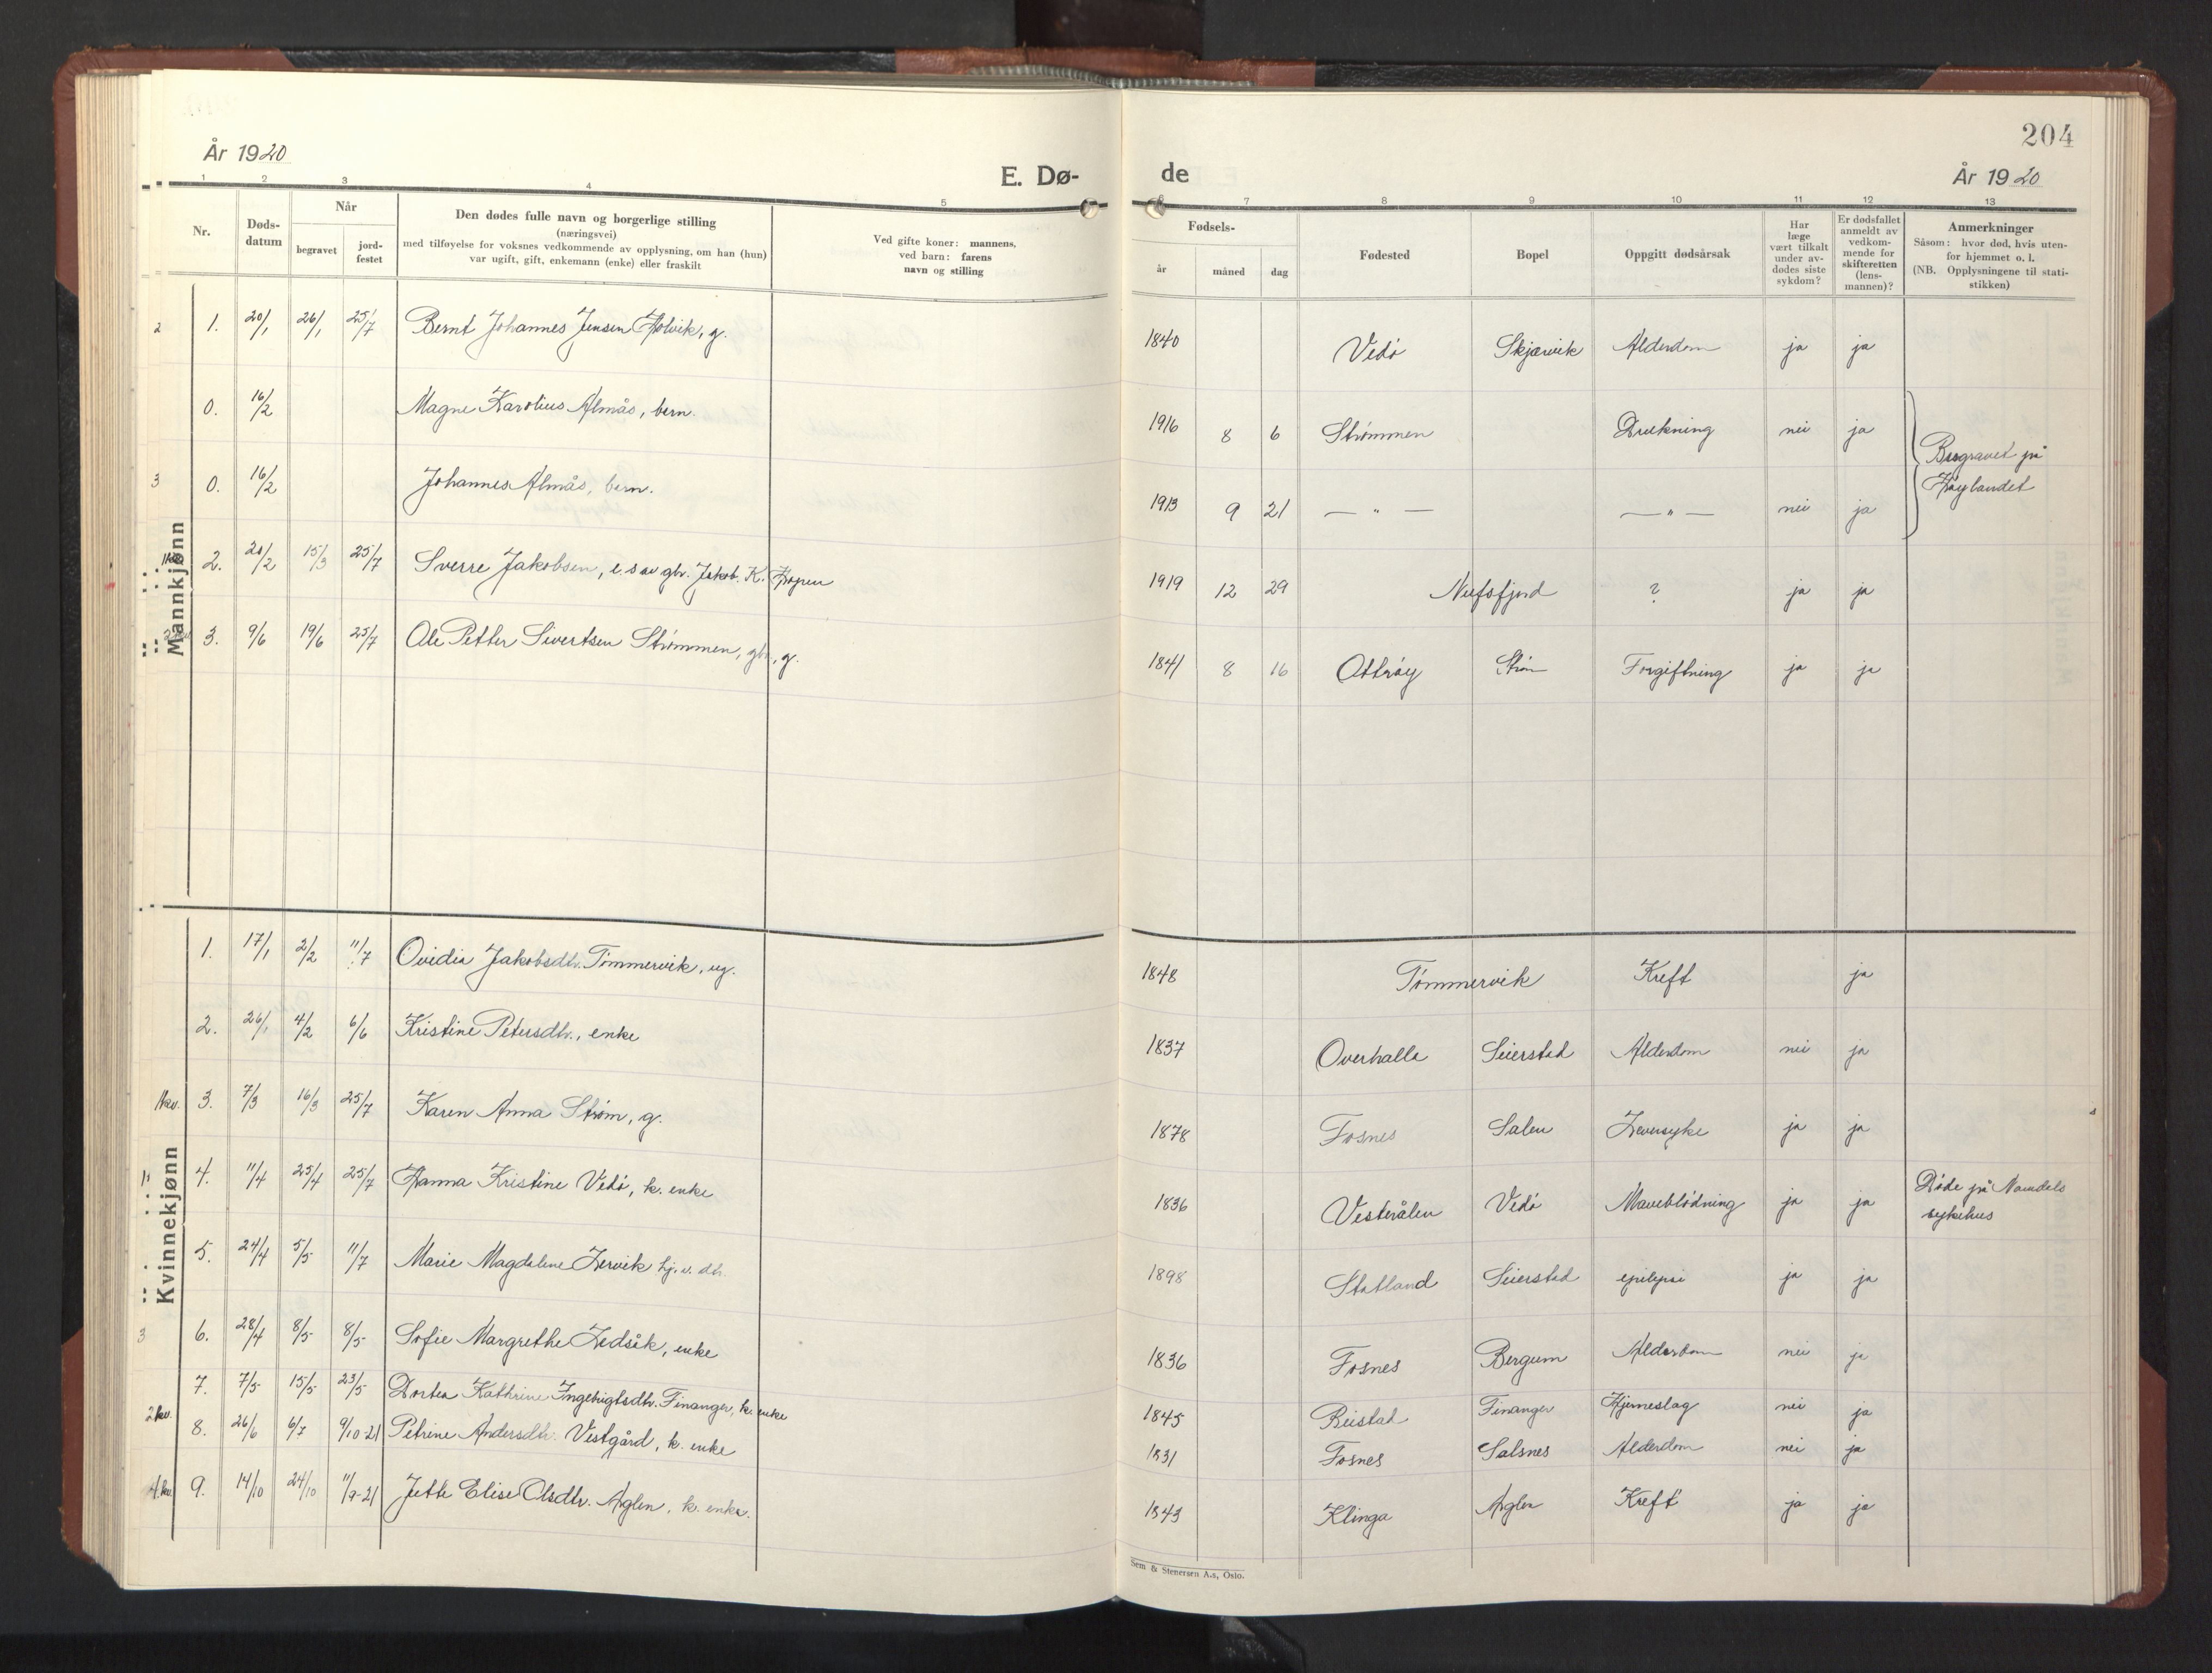 204
År 1920
E. Dø-
de
År 1920
1 2 3 4 5
6 7 8 9 10 11 12 13
Nr.
Døds-
datum
Når
begravet
jord-
festet
Den dødes fulle navn og borgerlige stilling
(næringsvei)
med tilføyelse for voksnes vedkommende av opplysning, om han (hun)
var ugift, gift, enkemann (enke) eller fraskilt
Ved gifte koner: mannens,
ved barn: farens
navn og stilling
Fødsels-
år
måned
dag
Fødested
Bopel
Oppgitt dødsårsak
Har
læge
vært tilkalt
under av-
dødes siste
sykdom?
Er dødsfallet
anmeldt av
vedkom-
mende for
skifteretten
(lens-
mannen)?
Anmerkninger
Såsom: hvor død, hvis uten-
for hjemmet o. l.
(NB. Opplysningene til stati-
stikken)
Mannkjønn
2 1. 20/1 26/1 25/7 Bernt Johannes Jensen Holvik, g. 1840 Vedø Skjærvik Alderdom ja ja
0. 16/2 Magne Karolius Almås, barn. 1916 8 6 Strømmen Drukning nei ja
Begravet på
Høylandet
3 0. 16/2 Johannes Almås, barn. 1913 9 21 — " — — " — nei ja
2. 20/2 15/3 25/7 Sverre Jakobsen, e. s av gbr. Jakob. K. Hopen 1919 12 29 Nufsfjord ? ja ja
3. 9/6 19/6 25/7 Ole Petter Sivertsen Strømmen, gbr, g. 1841 8 16 Otterøy Strøm Forgiftning ja ja
Kvinnekjønn
1. 17/1 2/2 11/7 Ovidia Jakobsdtr. Tømmervik, ug. 1848 Tømmervik Kreft ja
2. 26/1 4/2 6/6 Kristine Petersdtr., enke 1837 Overhalla Seierstad Alderdom nei ja
1kv. 3. 7/3 16/3 25/7 Karen Anna Strøm, g. 1878 Fosnes Salen Leversyke ja ja
4. 11/4 25/4 25/7 Hanna Kristine Vedø, k. enke 1836 Vesterålen Vedø Maveblødning ja ja Døde på Namdals
sykehus
5. 24/4 5/5 11/7 Marie Magdalene Lervik hj. v. dtr. 1898 Statland Seierstad epilepsi ja ja
3 6. 28/4 8/5 8/5 Sofie Margrethe Ledsåk, enke 1836 Fosnes Bergum Alderdom nei ja
7. 7/5 15/5 23/5 Dortea Kathrine Ingebrigtsdtr. Finanger, k. enke 1845 Reistad Finanger Hjerneslag nei ja
2kv. 8. 26/6 6/7 9/10-21 Petrine Andersdtr. Vestgård, k. enke 1831 Fosnes Salsnes Alderdom nei ja
4kv. 9. 14/10 24/10 11/9-21 Jette Elise Olsdtr. Aglen, k. enke. 1843 Klinga Aglen Kreft ja ja
Sem & Stenersen A.s, Oslo.